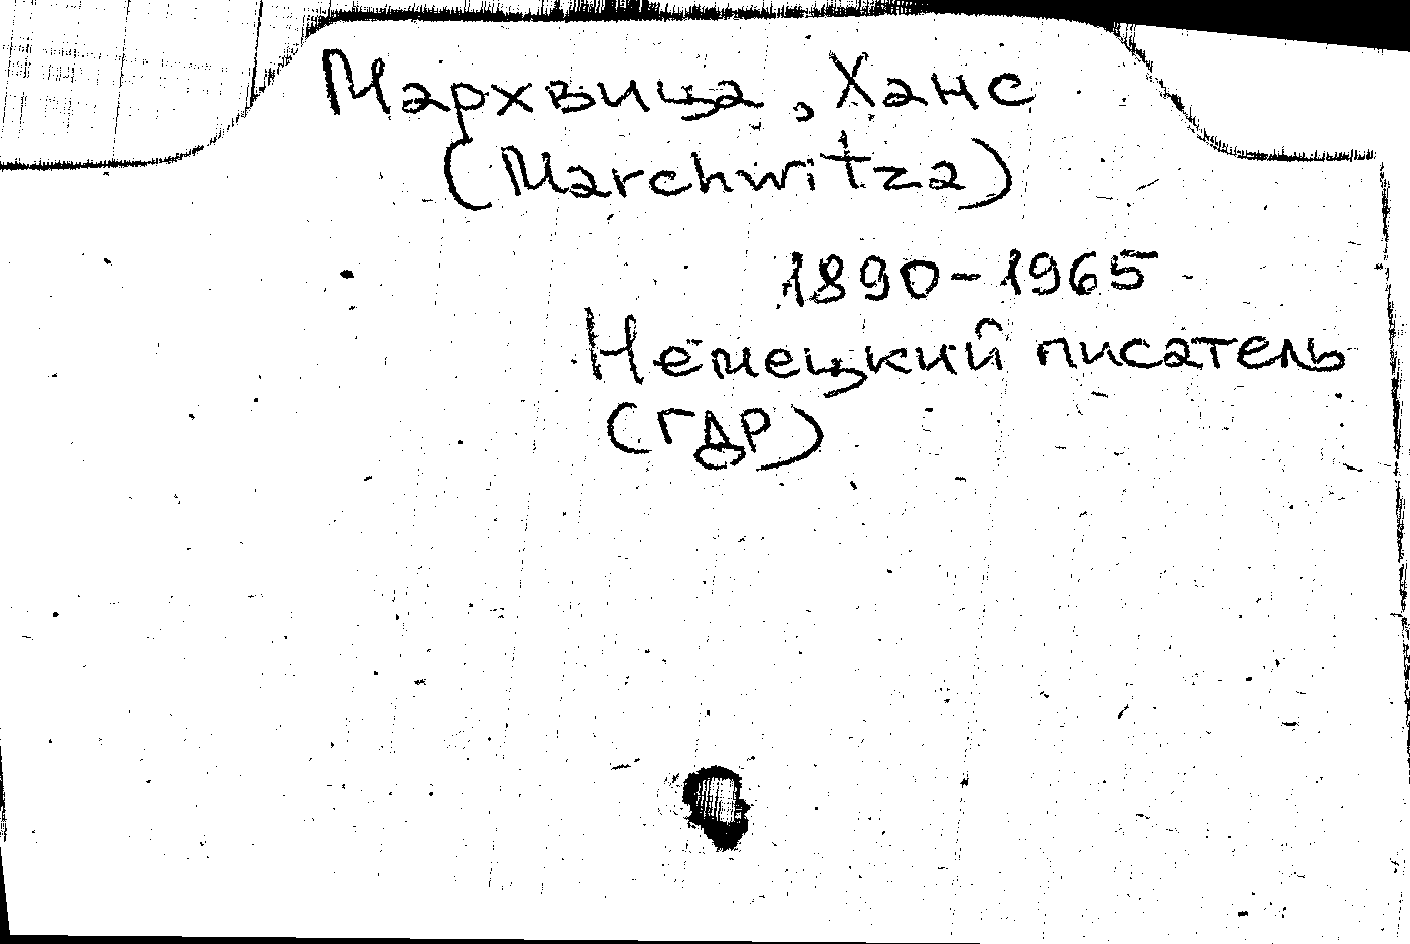 Мархвица, Ханс
(Marchwitza)
1890-1965
Немецкий писатель
(ГДР)